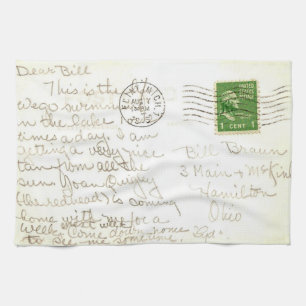 Dear Bill
This is the
we go swimming
in the lake
times a day. I am
getting a very nice
tan from all the
sun. Joan
(the redhead) is coming
home with me for a
week next week
Come down home
to see me sometime. "Ed"
FLINT, MICH.
AUG 7
PM
UNITED STATES POSTAGE
1 CENT 1
Bill Braun
3 Main + McKin
Hamilton
Ohio